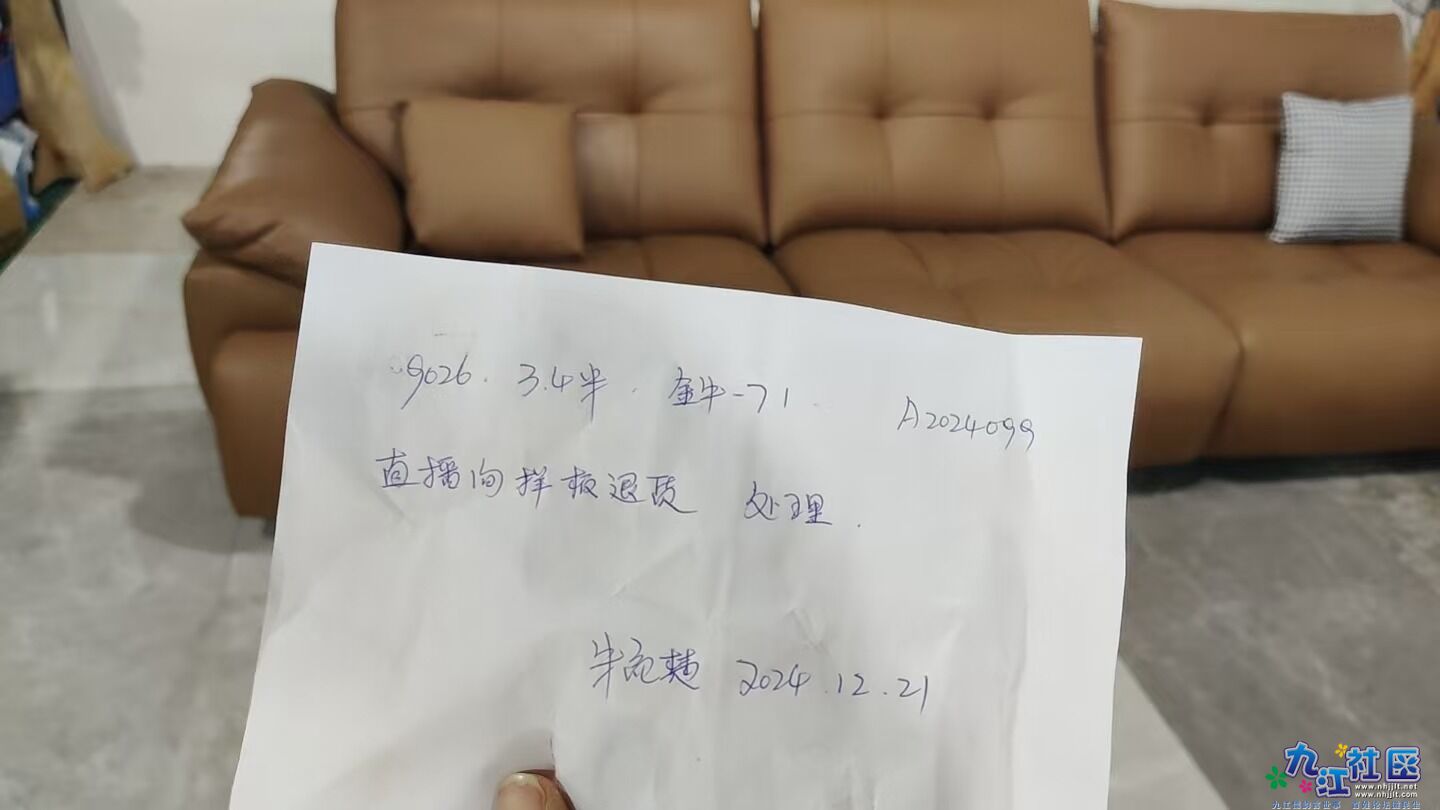 9026. 3.4半. 金牛-71 A2024099
直播间样板退货 处理.
2024.12.21
九江社区
www.nhjjlt.com